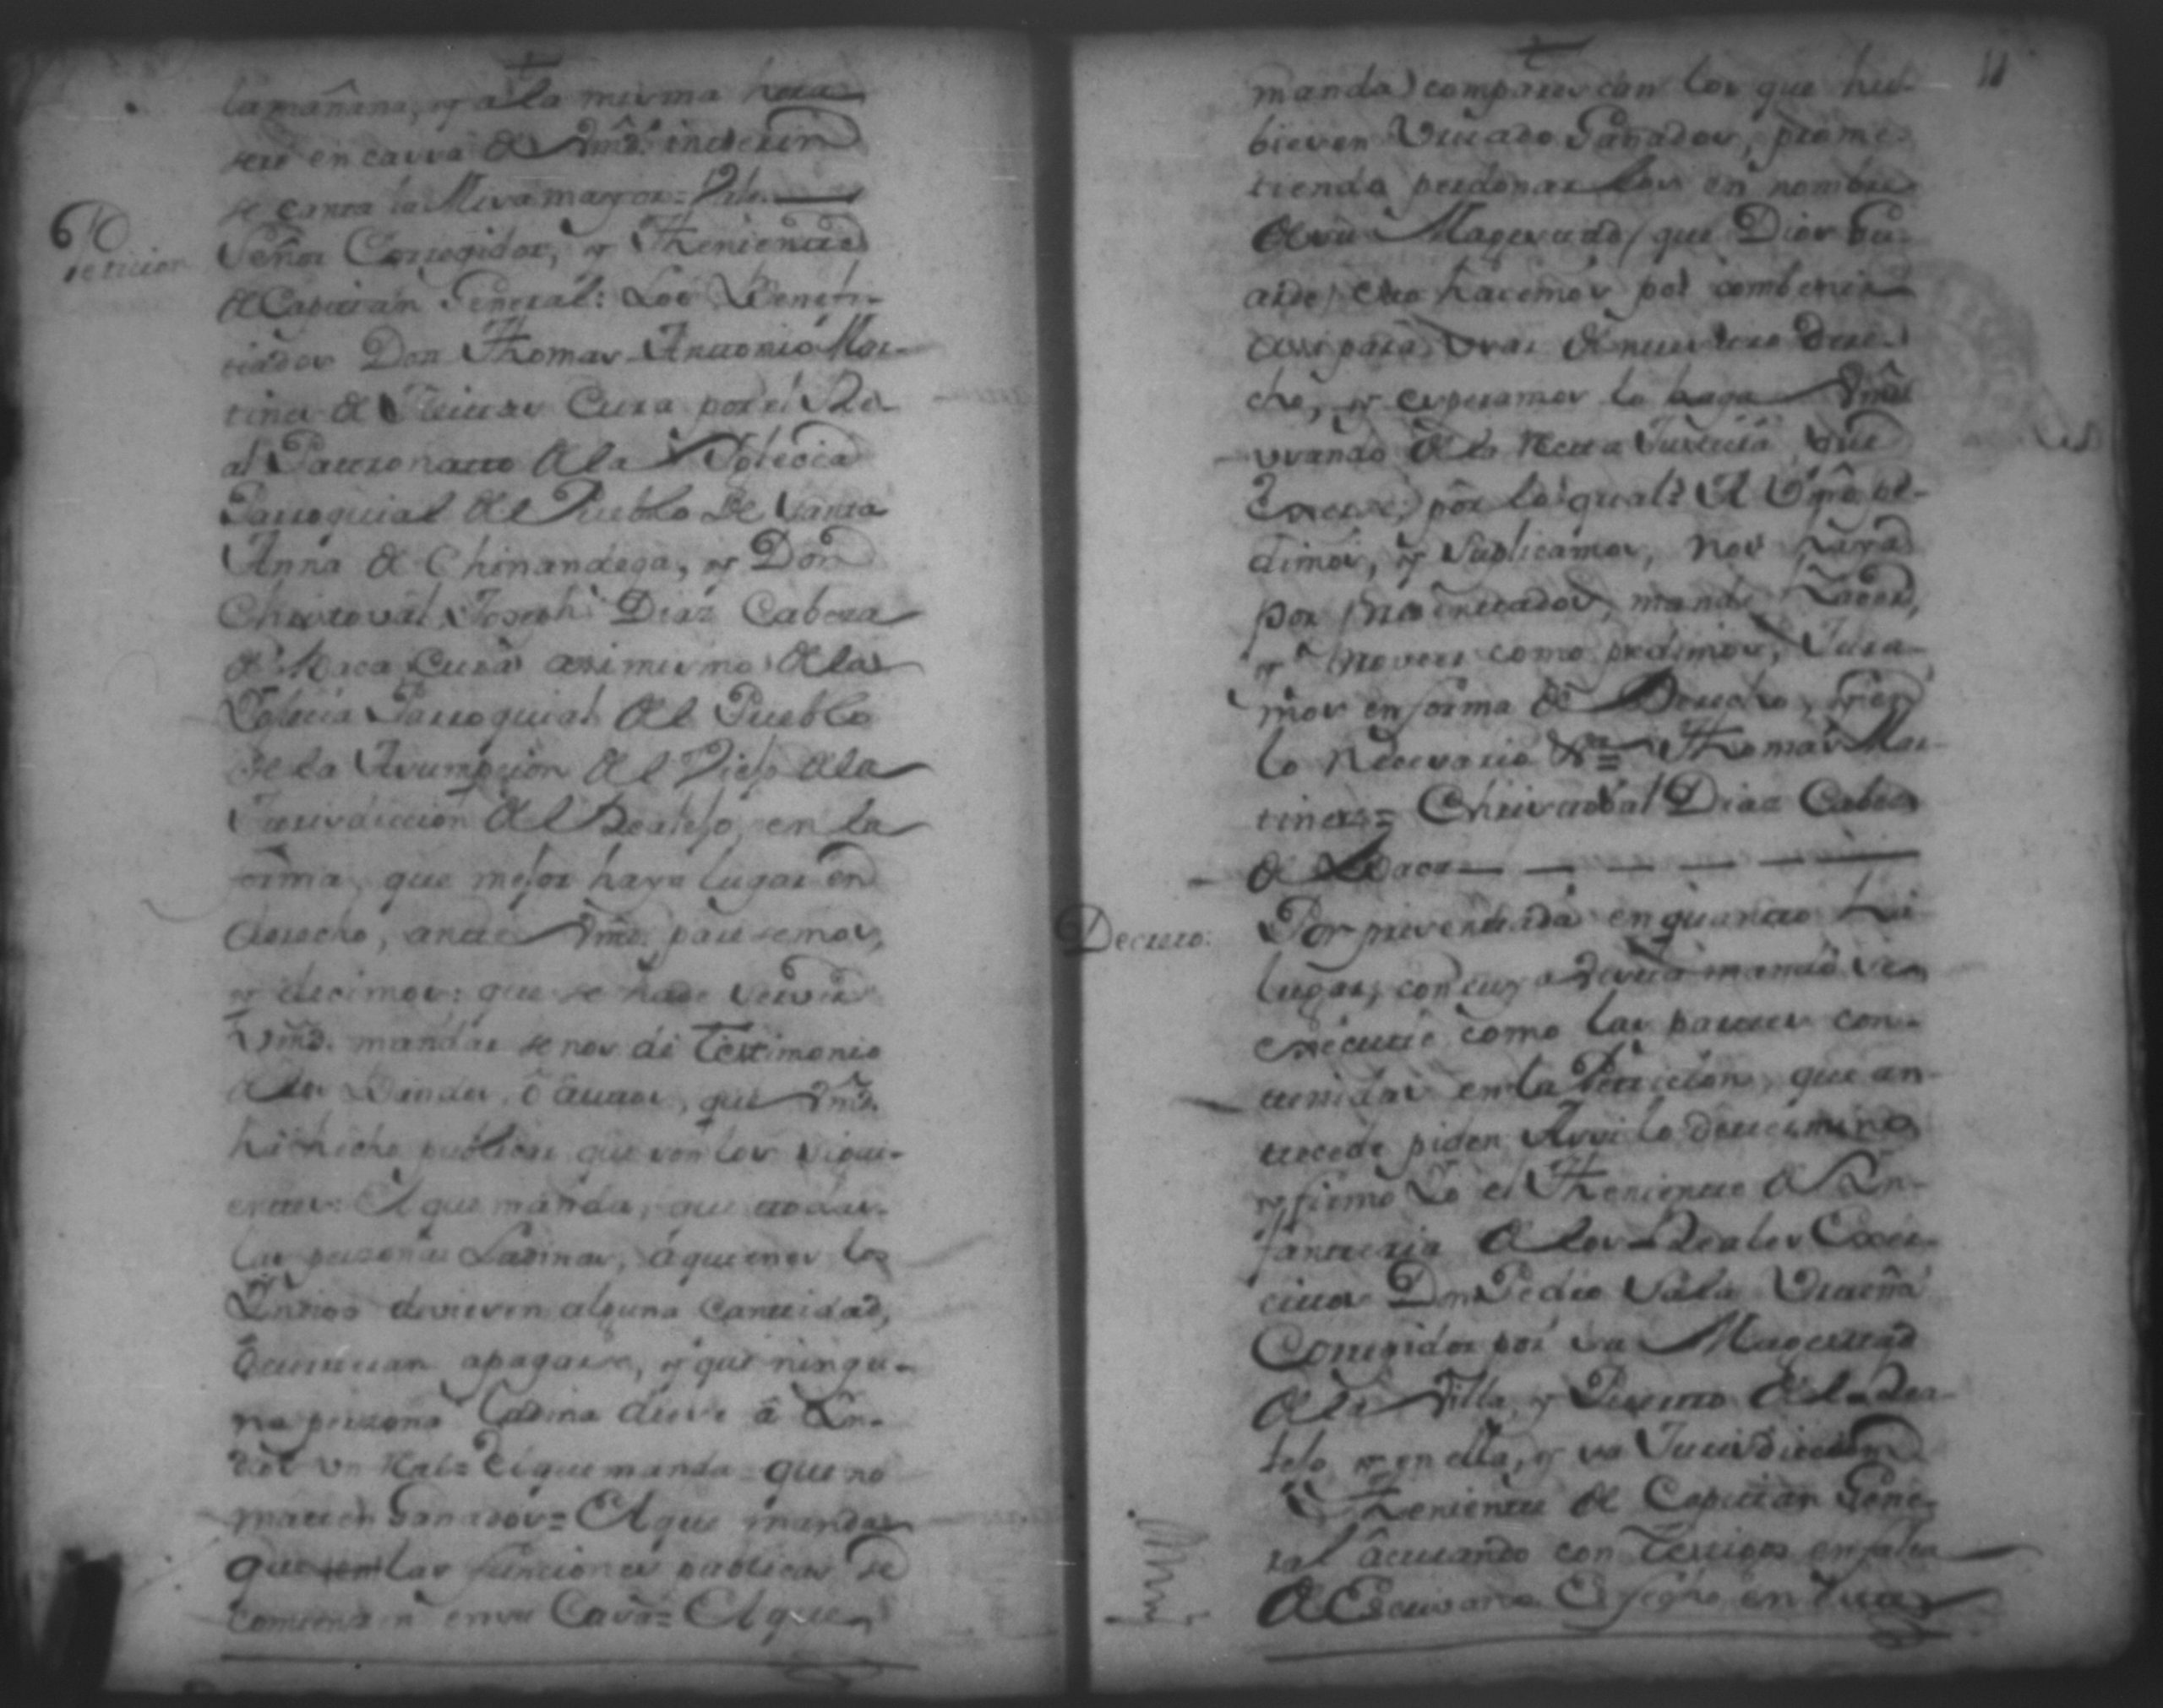 la mañana, y a la misma hora
sere en cassa de Vmd.
se canta la Missa mayor = 
Peticion
Señor Corregidor, y Theniente
de Capitan General: Los Benefi-
ciados Don Thomas Antonio Mar-
tines de Cura por el Re-
al Patronatto de la Iglecia
Parroquial del Pueblo de Santa
Anna de Chinandega, y Don
Christoval Joseph Diaz Cabeza
de Baca Cura assimismo de la
Iglecia Parroquial del Pueblo
de la Assumpcion del Viejo de la
Jurisdiccion del Realejo, en la
forma, que mejor haya lugar en
derecho, ante Vmd. paresemos,
y decimos: que se hade servir
Vmd. mandar se nos dé Testimonio
de los Bandos, ô auttos, que Vmd.
há hecho publicar que son los sigui-
entes: El que manda, que todas
las personas Ladinas, á quienes los
Indios deviesen alguna Cantidad,
ocurriesan apagarse, y que ningu-
na persona Ladina diese â In-
dio un Real = El que manda = que no
maten Ganados = El que manda
que las funciones publicas se
comiensen en su Cassa = El que
11
manda) comparescan los que hu-
biesen Ganados, prome-
tiendo perdonarlos en nombre
de su Magestad (que Dios Gu-
arde) esto hacemos por combenir
assi para usar de nuestro dere-
cho, y esperamos lo haga Vmd.
usando de la Recta Justicia que
Exerse; por lo qual = A Vmd. pe-
dimos, y suplicamos, nos haya
por precentados, mande hacer,
y proveer como pedimos, Jura-
mos en forma de Derecho, y en
lo Nesesario &a = Thomas Mar-
tines = Christoval Diaz Cabeza
de Baca —
Decreto:
Por presentada en quanto há
lugar, con cuya Vista mando se
execute como las partes con-
tenidas en la Peticion, que an-
tecede piden Assi lo determino
y firmo Yo el Theniente de In-
fanteria de los Reales Exer-
citos Don Pedro Sala Uruena
Corregidor por su Magestad
de la Villa, y Puerto de la Rea-
lejo, y en ella, y su Jurisdiccion
Theniente de Capitan Gene-
ral actuando con Testigos en falta
de Escrivano Es fecho en